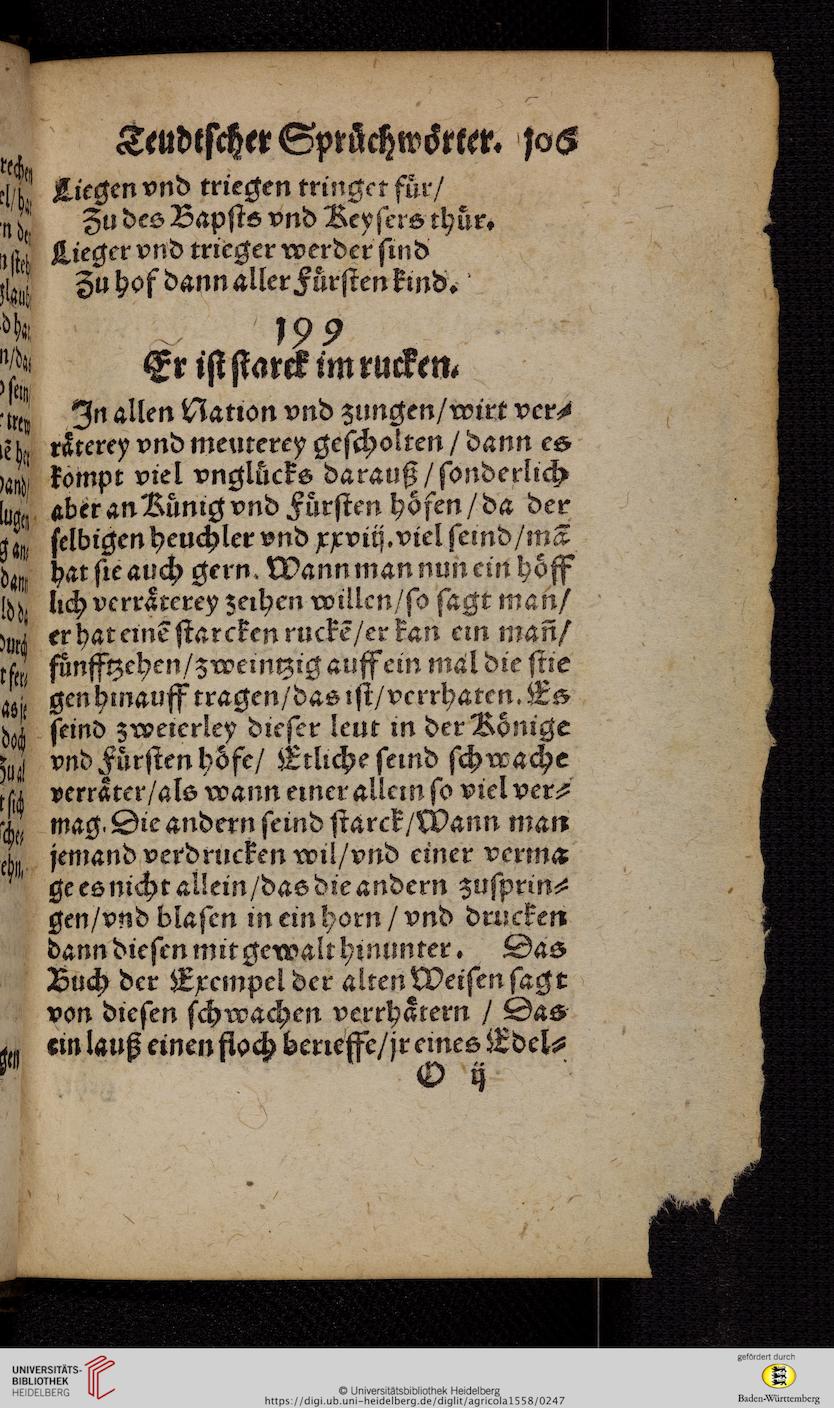 Teudtscher Sprüchwörter. 106
Liegen vnd triegen tringet für/
Zu des Bapsts vnd Keysers thür.
Lieger vnd trieger werder sind
Zu hof dann aller Fürsten kind.
199
Er ist starck im rucken.
In allen Nation vnd zungen/wirt ver⸗
räterey vnd meuterey gescholten / dann es
kompt viel vnglücks darauß / sonderlich
aber an Künig vnd Fürsten höfen / da der
selbigen heuchler vnd xxviij. viel seind/mã
hat sie auch gern. Wann man nun ein höff
lich verräterey zeihen willen/so sagt mañ/
er hat einẽ starcken ruckẽ/er kan ein mañ/
fünfftzehen/zweintzig auff ein mal die stie
gen hinauff tragen/das ist/verrhaten. Es
seind zweierley dieser leut in der Könige
vnd Fürsten höfe/ Etliche seind schwache
verräter/als wann einer allein so viel ver⸗
mag. Die andern seind starck/Wann man
jemand verdrucken wil/vnd einer verma
ge es nicht allein/das die andern zusprin⸗
gen/vnd blasen in ein horn / vnd drucken
dann diesen mit gewalt hinunter. Das
Buch der Exempel der alten Weisen sagt
von diesen schwachen verrhätern / Das
ein lauß einen floch berieffe/jr eines Edel⸗
O ij
UNIVERSITÄTS-
BIBLIOTHEK
HEIDELBERG
© Universitätsbibliothek Heidelberg
https://digi.ub.uni-heidelberg.de/diglit/agricola1558/0247
gefördert durch
Baden-Württemberg